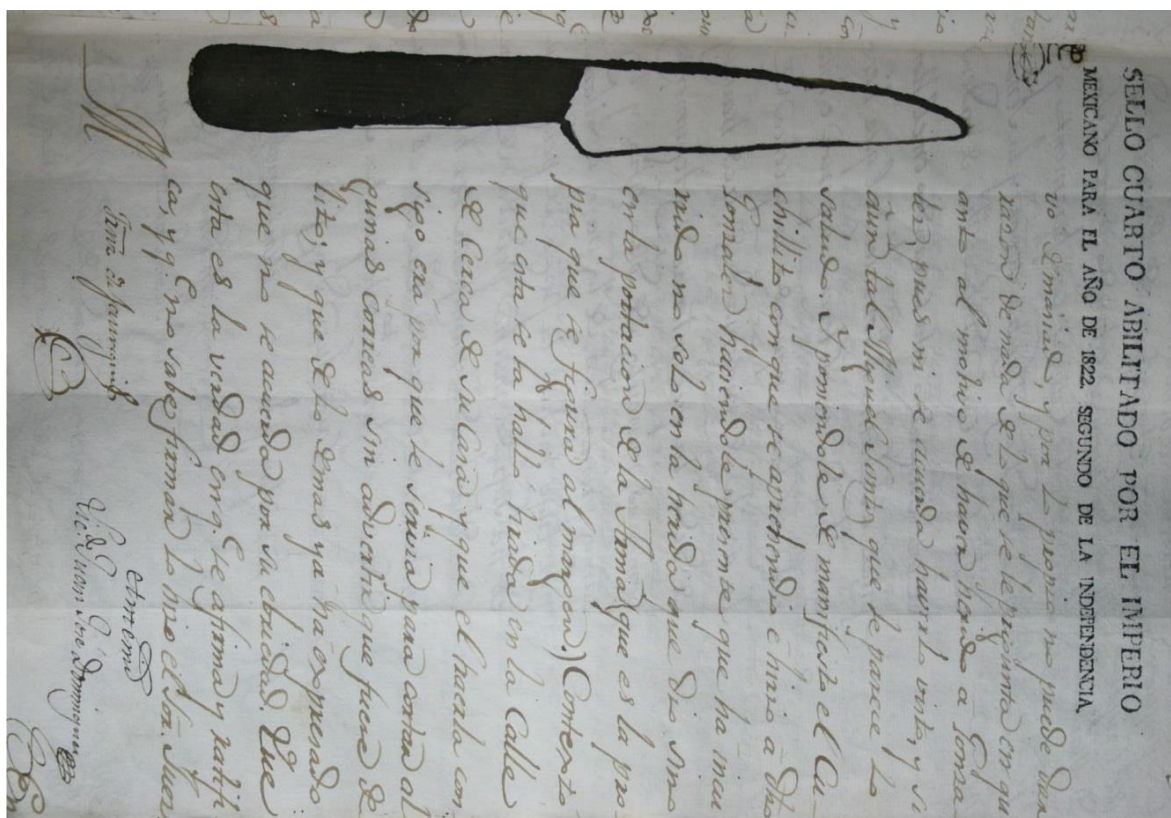 SELLO CUARTO ABILITADO POR EL IMPERIO
MEXICANO PARA EL AÑO DE 1822. SEGUNDO DE LA INDEPENDENCIA.
vo Emanad, y por lo propio no puede dar
razon de nada de lo que se le pregunta en qu
anto al motivo de haver herido a Gonza
les, pues ni se acuerda haverlo visto, y si
aún tal Miguel que le parece lo
saludó. Y poniendole de manifiesto el Cu-
chillito con que se aprehendió e hirio a Dho
Gonzales haciendole presente que ha incu
rrido no solo en la herida que dio sino
en la portacion de la Arma que es la pro
pia que se figura al margen.) Contexto
que esta se la halló tirada en la Calle
de Cerca de su Casa y que el hacerla con
sigo era por que le sirviera para cortar al
gunas correas sin advertir que fuese de
lito; y que de lo demas ya ha expresado
que no se acuerda por su ebriedad. Que
esta es la verdad en q. se afirmó y ratifi
có, y q. Eno sabe firmar lo hizo el Sor. Juez
Ante mi
Juan José Dominguez